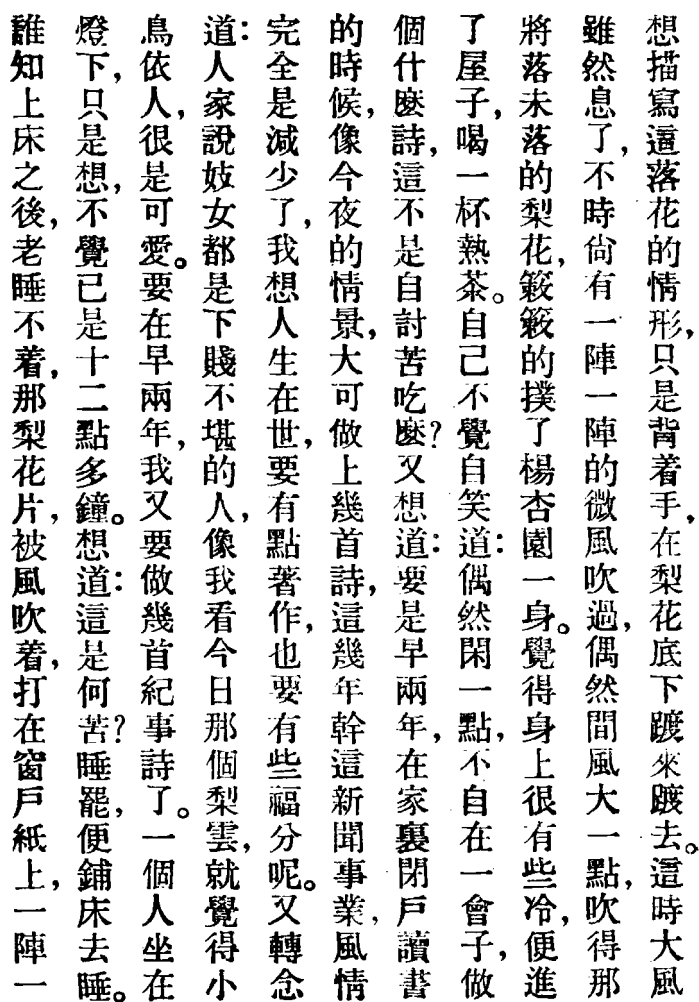 想描寫這落花的情形，只是背着手，在梨花底下踱來踱去。這時大風
雖然息了，不時尙有一陣一陣的微風吹過，偶然間風大一點，吹得那
將落未落的梨花，簌簌的撲了楊杏園一身。覺得身上很有些冷，便進
了屋子，喝一杯熱茶。自己不覺自笑道：偶然閑一點，不自在一會子，做
個什麽詩，這不是自討苦吃麽？又想道：要是早兩年，在家裏閉戶讀書
的時候，像今夜的情景，大可做上幾首詩，這幾年幹這新聞事業，風情
完全是減少了，我想人生在世，要有點著作，也要有些福分呢。又轉念
道：人家說妓女都是下賤不堪的人，像我看今日那個梨雲，就覺得小
鳥依人，很是可愛。要在早兩年，我又要做幾首紀事詩了。一個人坐在
燈下，只是想，不覺已是十二點多鐘。想道：這是何苦？睡罷，便鋪床去睡。
誰知上床之後，老睡不着，那梨花片，被風吹着，打在窗戶紙上，一陣一